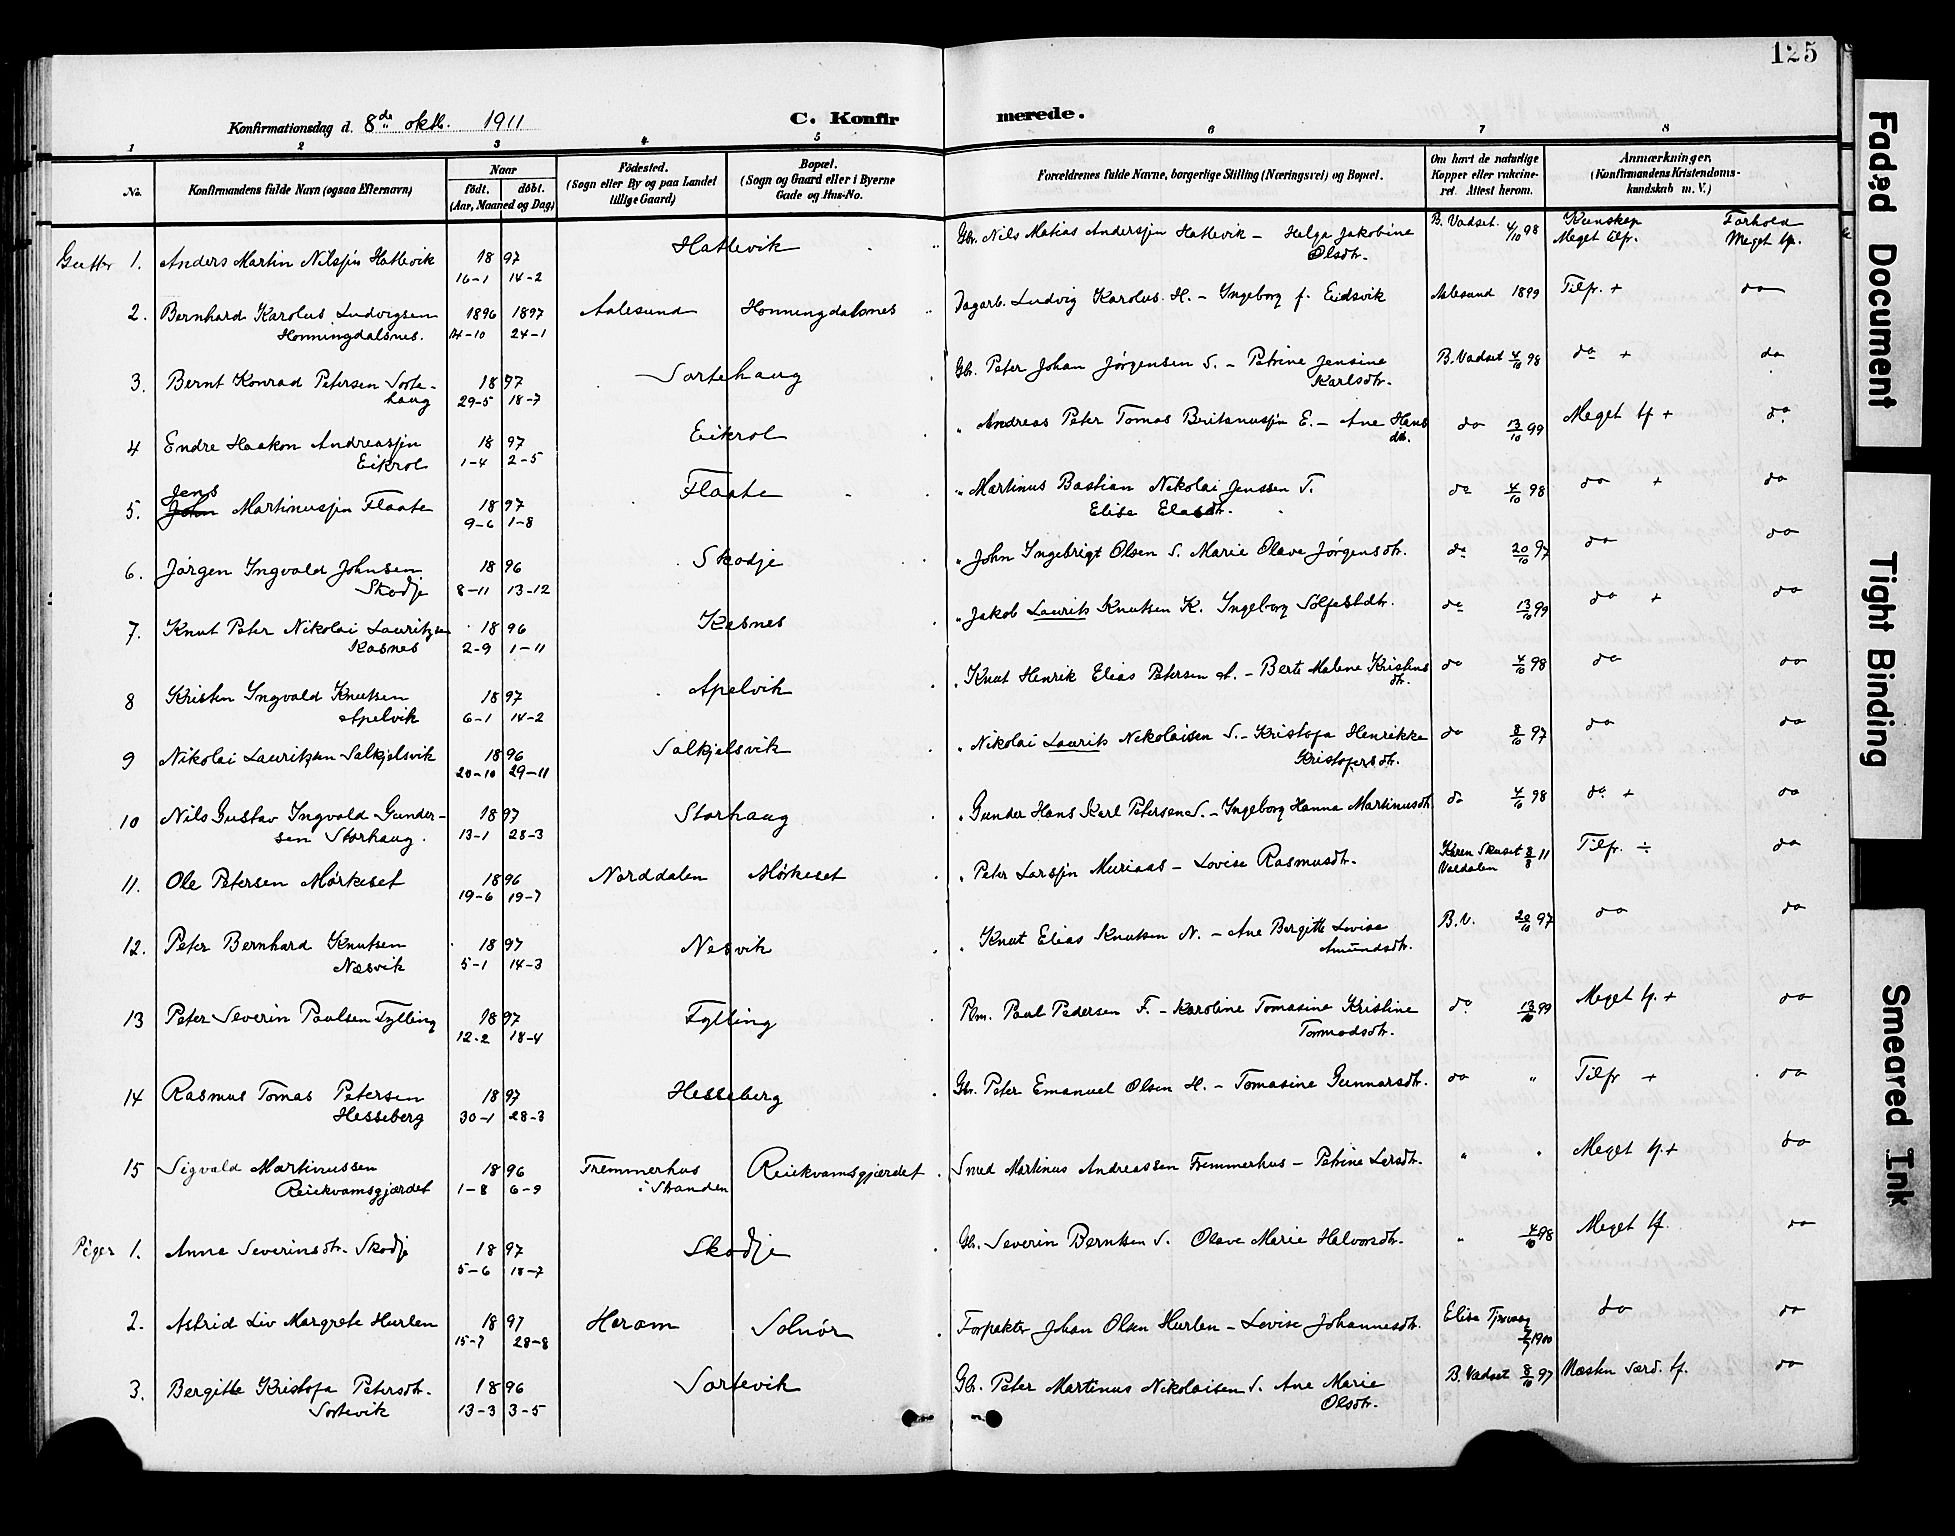 125
Konfirmationsdag d. 8de oktb. 1911
C. Konfirmerede.
1 2 3 4 5 6 7 8
No. Konfirmandens fulde Navn (ogsaa Efternavn) Naar født. døbt. (Aar, Maaned og Dag) Fødested. (Sogn eller By og paa Landet tillige Gaard) Bopæl. (Sogn og Gaard eller i Byerne Gade og Hus-No. Forældrenes fulde Navne, borgerlige Stilling (Næringsvei) og Bopæl. Om havt de naturlige Kopper eller vaccineret. Attest herom. Anmærkninger. (Konfirmandens Kristendomskundskab m. V.)
Kunskap Forhold
Gutter 1. Anders Martin Nilssjn Hatlevik 1897 16-1 14-2 Hatlevik Gbr. Nils Matias Anderssjn Hatlevik - Helga Jakobine Olsdtr. B. Vadset 4/10 98 Meget tilfr. Meget tf.
2. Bernhard Karolus Ludvigsen Honningdalsnes. 1896 1897 14-10 24-1 Aalesund Honningdalsnes Dagarb. Ludvig Karolus H. - Ingeborg f. Eidsvik Aalesund 1899 Tilfr. + do
3. Bernt Konrad Petersen Sortehaug 1897 29-5 18-7 Sortehaug Gbr. Peter Johan Jørgensen S. - Petrine Jensine Karlsdtr. B. Vadset 4/10 98 do + do
4 Endre Haakon Andreassjn Eikrol 1897 1-4 2-5 Eikrol " Andreas Peter Tomas Beritsnussjn E. - Ane Hansdtr. do 13/10 99 Meget tf + do
5. Jens John Martinussjn Flaate 1897 9-6 1-8 Flaate " Martinus Bastian Nikolai Jenssen F. Elise Eliasdtr. do 4/10 98 do + do
6. Jørgen Ingvald Johnsen Skodje 1896 8-11 13-12 Skodje " John Ingebrigt Olsen S. Marie Olave Jørgensdtr. do 20/10 97 do do
7. Knut Peter Nikolai Lauritzsen Kasnes 1896 2-9 1-11 Kasnes " Jakob Laurits Knutsen K. Ingeborg Solfestdtr. do 13/10 99 do + do
8 Kristen Ingvald Knutsen Apelvik 1897 6-1 14-2 Apelvik " Knut Henrik Elias Petersen A. - Berte Malene Kristensdtr. do 4/10 98 do do
9 Nikolai Lauritzsen Salkjelsvik 1896 20-10 29-11 Salkjelsvik " Nikolai Laurits Nikolaisen S. - Kristofa Henrikke Kristofersdtr. do 8/10 97 do do
10 Nils Gustav Ingvald Gundersen Storhaug. 1897 13-1 28-3 Storhaug " Gunder Hans Karl Petersen S. - Ingeborg Hanna Martinusdtr. do 4/10 98 do + do
11. Ole Petersen Mørkeset 1896 19-6 19-7 Norddalen Mørkeset " Peter Larssjn Muriaas - Lovise Rasmusdtr. Karen Skuset Valdalen 8/8 11 Tilfr. ÷ do
12. Peter Bernhard Knutsen Næsvik 1897 5-1 14-3 Nesvik " Knut Elias Knutsen N. - Ane Bergitte Lovise Amundsdtr. B. V. 20/10 97 do do
13 Peter Severin Paulsen Fylling 1897 12-2 18-4 Fylling Plm. Paul Pedersen F. - Karoline Tomasine Kristine Tormodsdtr. do 13/10 99 Meget tf. + do
14 Rasmus Tomas Petersen Hesseberg 1897 30-1 28-3 Hesseberg Gbr. Peter Emanuel Olsen H. - Tomasine Gunnarsdtr. do " Tilfr + do
15 Sigvald Martinussen Reiekvamsgjærdet 1896 1-8 6-9 Fremmerhus i Stranden Reiekvamsgjærdet Smed Martinus Andreassen Fremmerhus - Petrine Larsdtr. " " Meget tf. + do
Piger 1. Anna Severinsdtr. Skodje 1897 5-6 18-7 Skodje Gbr. Severin Berntsen S. Olave Marie Halvorsdtr. " 4/10 98 Meget tf. do
2. Astrid Liv Margrete Hurlen 1897 15-7 28-8 Haram Solnør Forpakter Johan Olsen Hurlen - Lovise Johannesdtr. Elise 1900 do do
3. Bergitte Kristofa Petersdtr. Sortevik 1896 13-3 3-5 Sortevik Gbr. Peter Martinus Nikolaisen S. Ane Marie Olsdtr. B. Vadset 8/10 97 Næsten særd. tf. do
Faded Document
Tight Binding
Smeared Ink